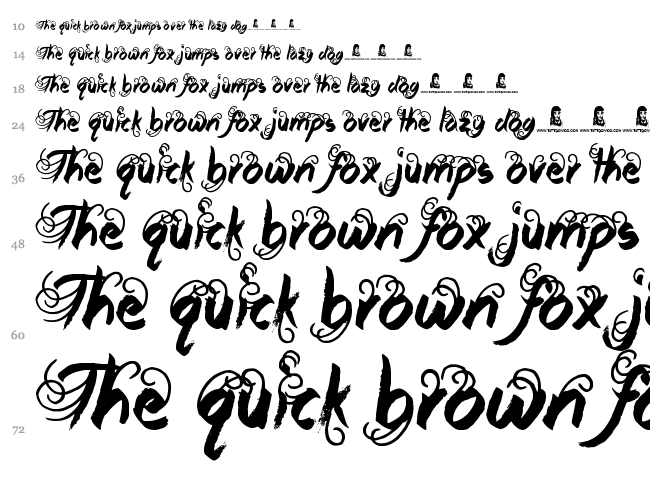 10 The quick brown fox jumps over the lazy dog
14 The quick brown fox jumps over the lazy dog
18 The quick brown fox jumps over the lazy dog
24 The quick brown fox jumps over the lazy dog
36 The quick brown fox jumps over the
48 The quick brown fox jumps
60 The quick brown fox ju
72 The quick brown fo